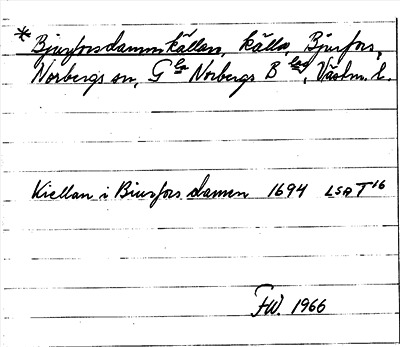 * Bjursforsdammkällan, källa, Bjurfors,
Norbergs sn, Gla Norbergs Bslag, Västm. l.
Kiellan i Biursfors damen 1694 LSA T16
FW. 1966